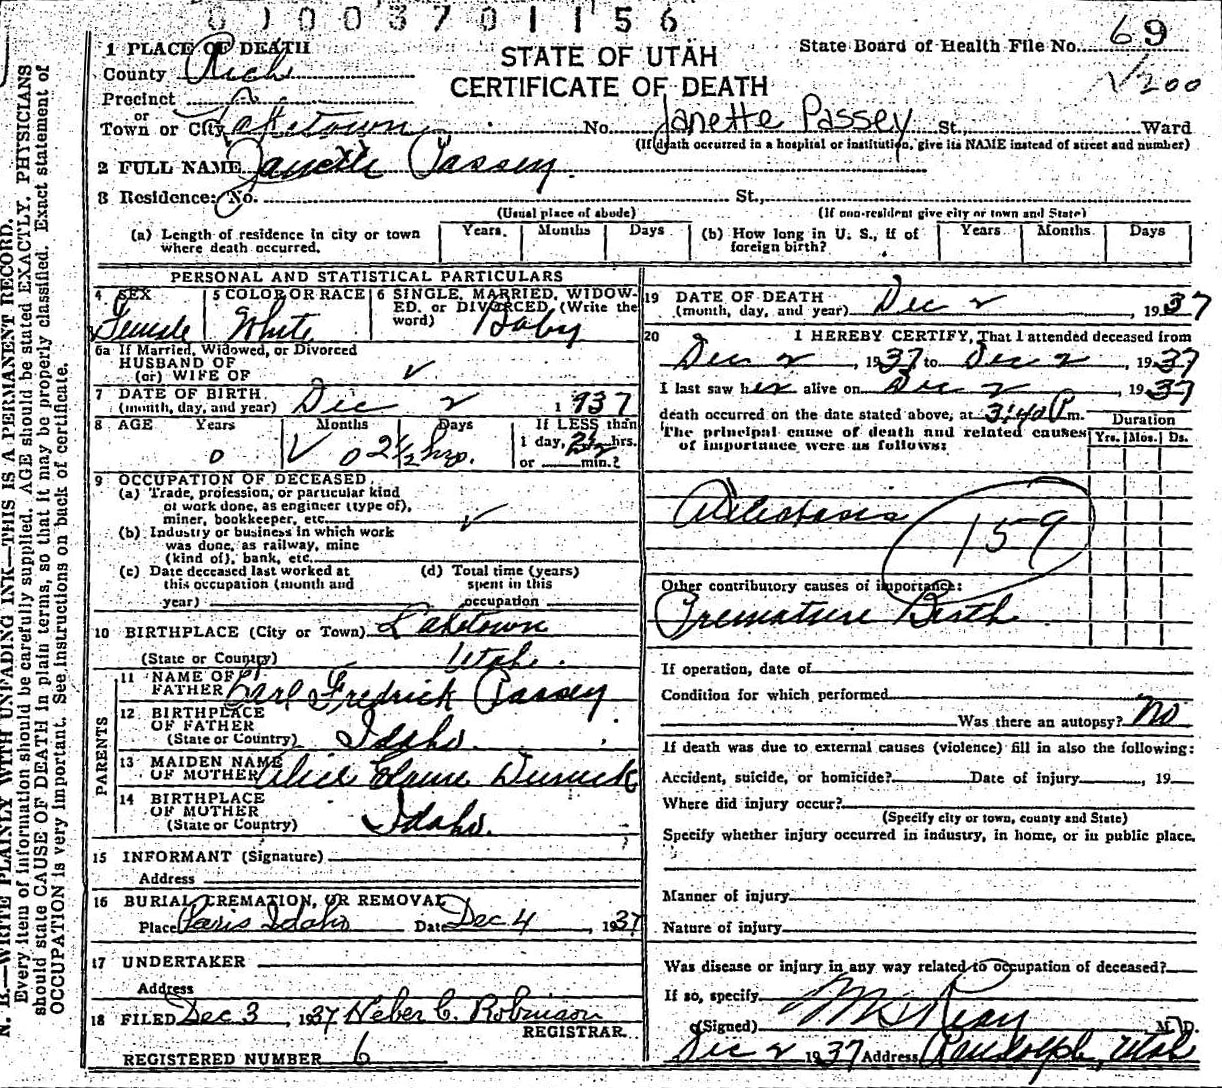 0 1 0 0 3 7 0 1 1 5 6
N. B.—WRITE PLAINLY WITH UNFADING INK—THIS IS A PERMANENT RECORD.
Every item of information should be carefully supplied. AGE should be stated EXACTLY. PHYSICIANS
should state CAUSE OF DEATH in plain terms, so that it may be properly classified. Exact statement of
OCCUPATION is very important. See instructions on back of certificate.
STATE OF UTAH
CERTIFICATE OF DEATH
State Board of Health File No. 69
√200
1 PLACE OF DEATH
County Rich
Precinct
or
Town or City Laketown No. Janette Passey St. Ward
(If death occurred in a hospital or institution, give its NAME instead of street and number)
2 FULL NAME Janette Passey.
3 Residence: No. St.,
(Usual place of abode) (If non-resident give city or town and State)
(a) Length of residence in city or town where death occurred. Years. Months Days
(b) How long in U. S., if of foreign birth? Years Months. Days
PERSONAL AND STATISTICAL PARTICULARS
4 SEX Female
5 COLOR OR RACE White
6 SINGLE, MARRIED, WIDOWED. OR DIVORCED. (Write the word) Baby
6a If Married, Widowed, or Divorced
HUSBAND OF
(or) WIFE OF ✓
7 DATE OF BIRTH
(month, day, and year) Dec 2 1937
8 AGE Years Months Days If LESS than
0 ✓ 0 2½ hrs. 1 day, 2½ hrs.
or min.?
9 OCCUPATION OF DECEASED
(a) Trade, profession, or particular kind
of work done, as engineer (type of),
miner, bookkeeper, etc. ✓
(b) Industry or business in which work
was done, as railway, mine
(kind of), bank, etc.
(c) Date deceased last worked at
this occupation (month and
year)
(d) Total time (years)
spent in this
occupation
10 BIRTHPLACE (City or Town) Laketown
(State or Country) Utah.
PARENTS
11 NAME OF
FATHER Earl Fredrick Passey
12 BIRTHPLACE
OF FATHER
(State or Country) Idaho.
13 MAIDEN NAME
OF MOTHER Alice
14 BIRTHPLACE
OF MOTHER
(State or Country) Idaho.
15 INFORMANT (Signature)
Address
16 BURIAL, CREMATION, OR REMOVAL
Place Paris Idaho Date Dec 4, 1937
17 UNDERTAKER
Address
18 FILED Dec 3, 1937 Heber C. Robinson
REGISTRAR.
REGISTERED NUMBER 6
19 DATE OF DEATH
(month, day, and year) Dec 2, 1937
20 I HEREBY CERTIFY, That I attended deceased from
Dec 2, 1937 to Dec 2, 1937
I last saw her alive on Dec 2, 1937
death occurred on the date stated above, at 3:40 P m.
The principal cause of death and related causes
of importance were as follows:
Duration
Yrs. Mos. Ds.
Atelectasis
159
Other contributory causes of importance:
Premature Birth
If operation, date of
Condition for which performed
Was there an autopsy? No
If death was due to external causes (violence) fill in also the following:
Accident, suicide, or homicide? Date of injury, 19
Where did injury occur?
(Specify city or town, county and State)
Specify whether injury occurred in industry, in home, or in public place.
Manner of injury
Nature of injury
Was disease or injury in any way related to occupation of deceased?
If so, specify
(Signed) M. D.
Dec 2 1937 Address Randolph, Utah